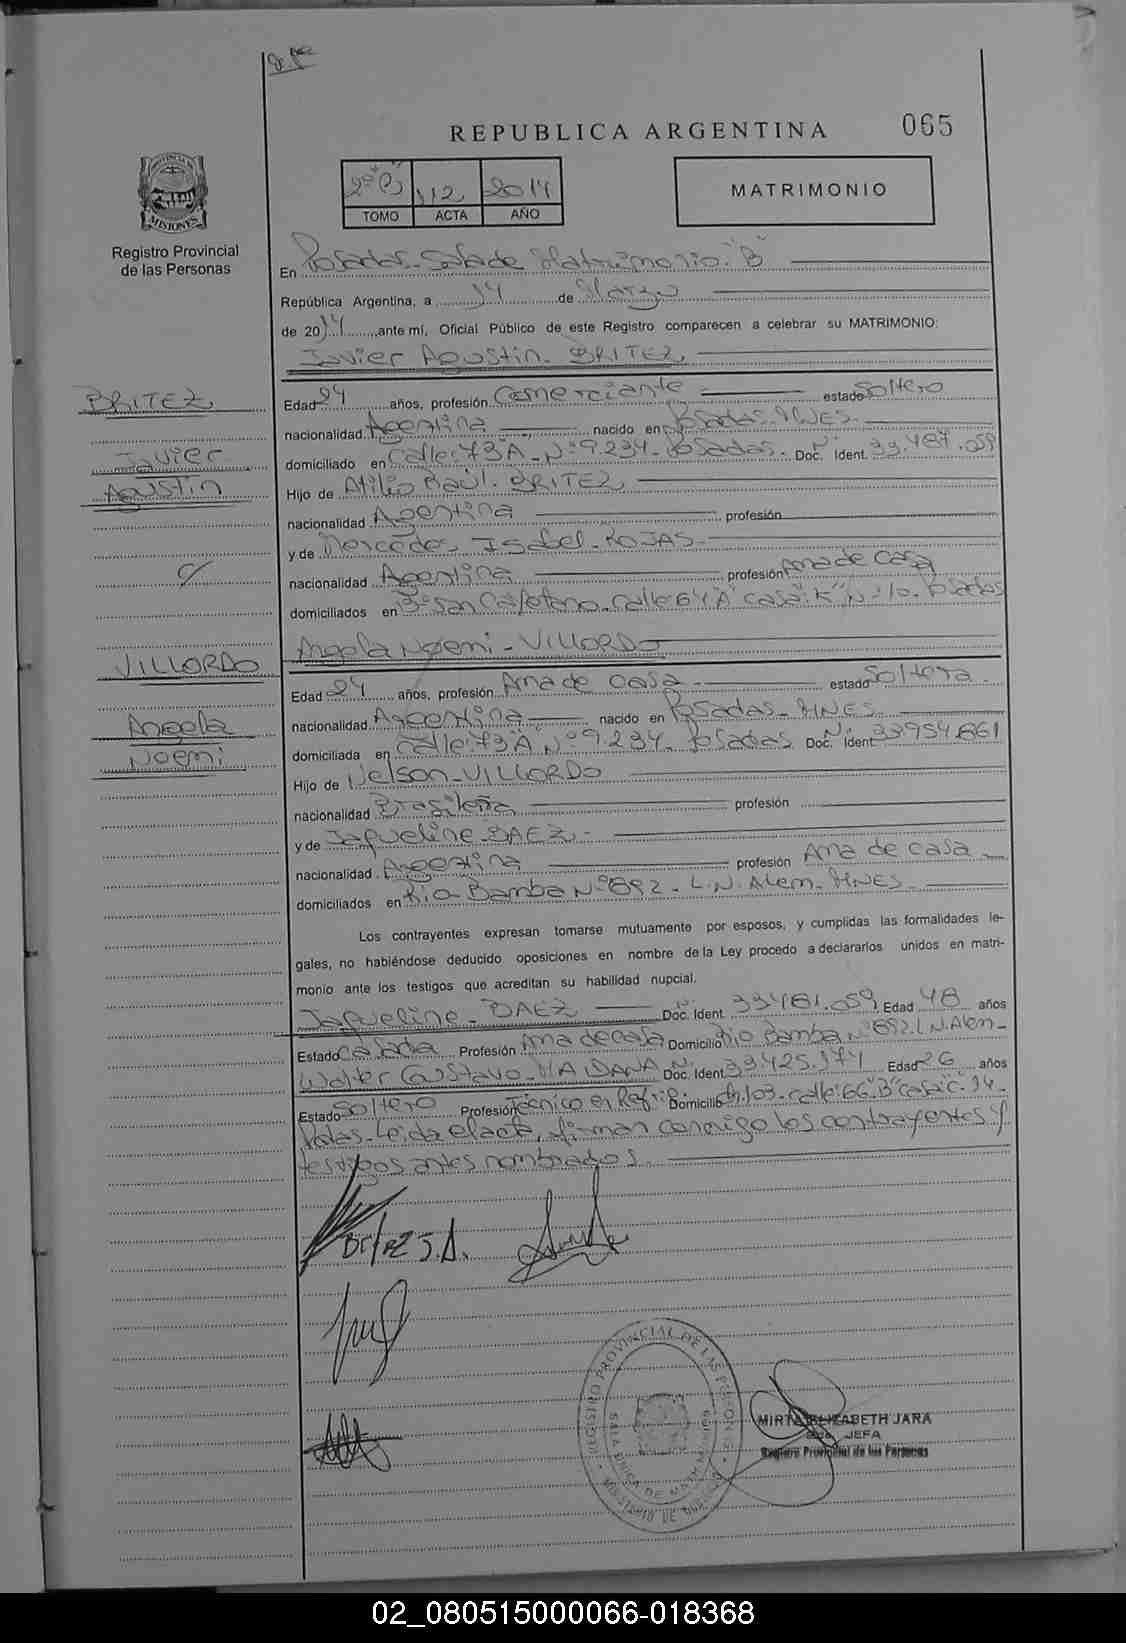 REPUBLICA ARGENTINA 065
2º "B" 112 2014
TOMO ACTA AÑO
MATRIMONIO
PROVINCIA DE
MISIONES
Registro Provincial
de las Personas
En Posadas - Sala de Matrimonio "B"
República Argentina, a 14 de Marzo
de 2014, ante mí, Oficial Público de este Registro comparecen a celebrar su MATRIMONIO:
Javier Agustin - BRITEZ
BRITEZ
Javier
Agustin
Edad 24 años, profesión Comerciante estado Soltero
nacionalidad Argentina nacido en Posadas - MNES.
domiciliado en Calle: 73 A - Nº 9.234 - Posadas. Doc. Ident. 33.487.059
Hijo de Atilio Raúl - BRITEZ
nacionalidad Argentina profesión
y de Mercedes Isabel - ROJAS -
nacionalidad Argentina profesión Ama de casa
domiciliados en Bº San Cayetano - Calle 64 "A" casa "K" Nº 10 - Posadas
c/
Angela Noemi - VILLORDO
VILLORDO
Angela
Noemi
Edad 24 años, profesión Ama de casa estado Soltera
nacionalidad Argentina nacido en Posadas - MNES
domiciliada en Calle: 73 "A" Nº 9.234 - Posadas Doc. Ident. 33954.861
Hijo de Nelson - VILLORDO
nacionalidad Brasileña profesión
y de Jaqueline BAEZ -
nacionalidad Argentina profesión Ama de casa
domiciliados en Rio Bamba Nº 892 - L.N. Alem - MNES -
Los contrayentes expresan tomarse mutuamente por esposos, y cumplidas las formalidades le-
gales, no habiéndose deducido oposiciones en nombre de la Ley procedo a declararlos unidos en matri-
monio ante los testigos que acreditan su habilidad nupcial.
Jaqueline - BAEZ Doc. Ident. 33481.059 Edad 48 años
Estado Casada Profesión Ama de casa Domicilio Rio Bamba Nº 892. L.N. Alem -
Walter Gustavo - MAIDANA Doc. Ident. 33.425.974 Edad 26 años
Estado Soltero Profesión Técnico en Refrig. Domicilio Ch. 103 - calle: 66 "B" casa: C. 34 -
Pdas - Leida el acta, firman conmigo los contrayentes y
testigos antes nombrados.
Britez J. A.
REGISTRO PROVINCIAL DE LAS PERSONAS
MIRTA ELIZABETH JARA
JEFA
Registro Provincial de las Personas
02_080515000066-018368